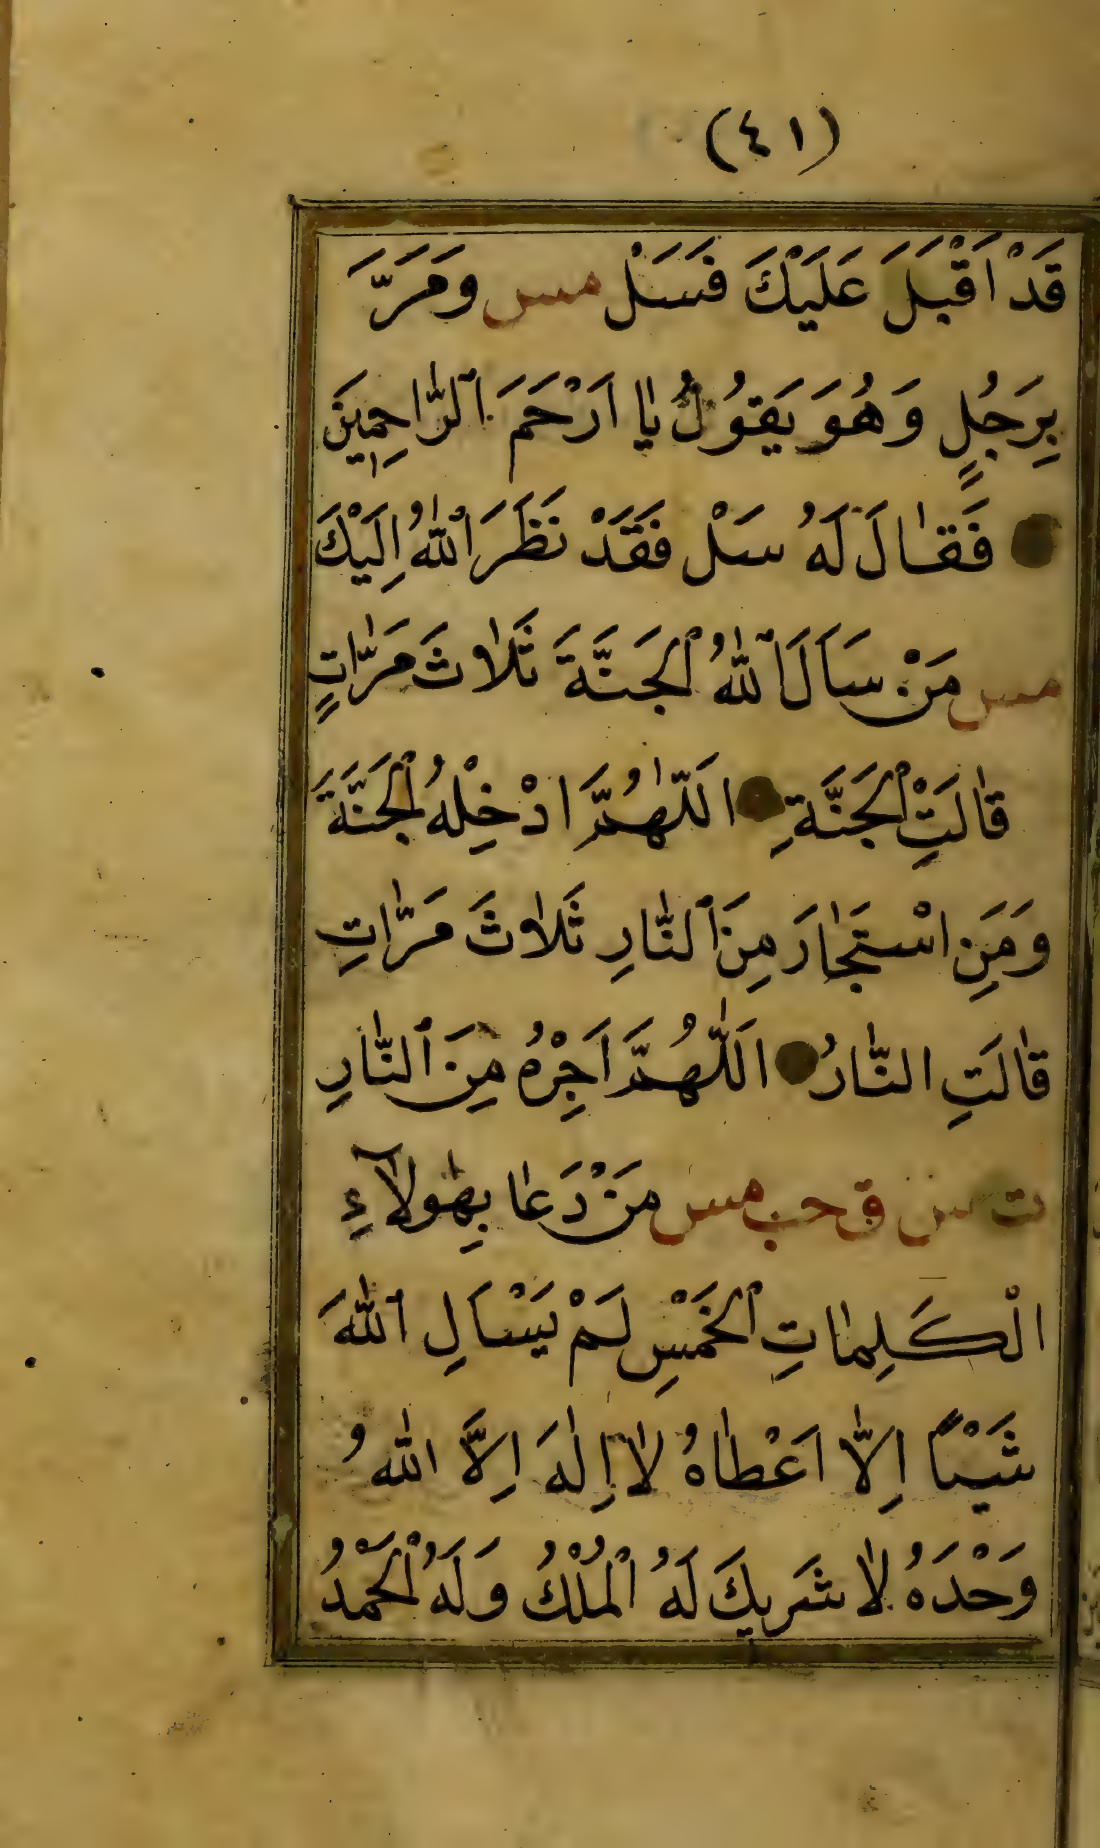 (٤١)
قَدْ اَقْبَلَ عَلَيْكَ فَسَلْ مس وَمَرَّ
بِرَجُلٍ وَهُوَ يَقُولُ يٰا اَرْحَمَ الرّٰاحِمِينَ
فَقٰالَ لَهُ سَلْ فَقَدْ نَظَرَ اللّٰهُ اِلَيْكَ
مس مَنْ سَاَلَ اللّٰهُ الْجَنَّةَ ثَلاٰثَ مَرّٰاتٍ
قٰالَتِ الْجَنَّةِ اَللّٰهُمَّ ادْخِلْهُ الْجَنَّةَ
وَمَنِ اسْتَجٰارَ مِنَ النّٰارِ ثَلاٰثَ مَرّٰاتٍ
قٰالَتِ النّٰارُ اَللّٰهُمَّ اَجِرْهُ مِنَ النّٰارِ
ت س ق حب مس مَنْ دَعٰا بِهٰولاٰءِ
الْكَلِمٰاتِ الْخَمْسِ لَمْ يَسْاَلِ اللّٰهَ
شَيْئًا اِلّٰا اَعْطٰاهُ لاٰ اِلٰهَ اِلاَّ اللّٰهُ
وَحْدَهُ لاٰ شَرِيكَ لَهُ الْمُلْكُ وَلَهُ الْحَمْدُ